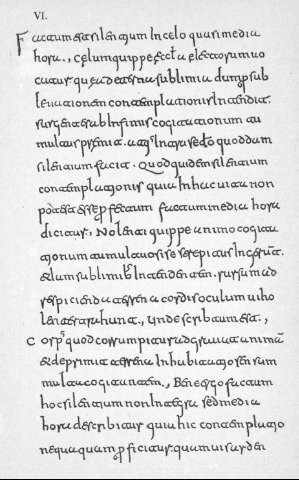 VI.
Factum est silentium In celo quasi media
hora., Celum quippe eccła electorum uo
catur. que ad eterna sublimia dum per sub
leuationem contemplationis Intendit.
surgentes ab Infimis cogitationum tu
multus premit. atq; Intra se do quoddam
silentium facit. Quod quidem silentium
contemplationis quia In hac uita non
potest esse perfectum factum media hora
dicitur. Nolenti quippe animo cogitati
onum tumultuosi se strepitus Ingerunt.
et dum sublimibus Intendentem. rursum ad
respicienda terrena cordis oculum uiho
lenter trahunt., Unde scribtum est.,
Corpus quod corrumpitur adgrauat animam
et deprimit terrena Inhabitatio sensum
multa cogitantem., Bene ergo factum
hoc silentium non Integra sed media
hora describitur quia hic contemplatio
nequaquam perficitur. quamuis arden